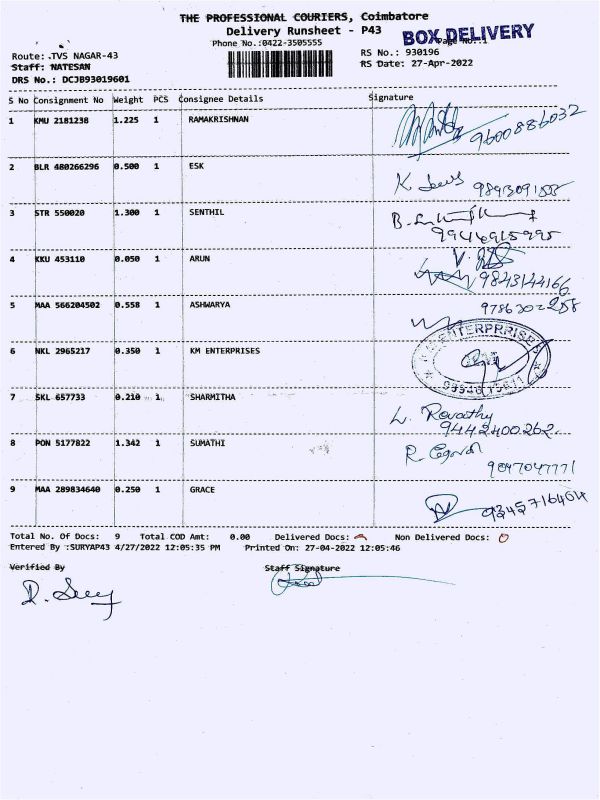 THE PROFESSIONAL COURIERS, Coimbatore
Delivery Runsheet - P43
BOX DELIVERY
Phone No.:0422-3505555
Page No.:1
Route: .TVS NAGAR-43
RS No.: 930196
Staff: NATESAN
RS Date: 27-Apr-2022
DRS No.: DCJB93019601
S No Consignment No Weight PCS Consignee Details Signature
1 KMU 2181238 1.225 1 RAMAKRISHNAN
9600886032
2 BLR 480266296 0.500 1 ESK
K
3 STR 550020 1.300 1 SENTHIL
B.
9944915995
4 KKU 453110 0.050 1 ARUN
9843144166
5 MAA 566204502 0.558 1 ASHWARYA
6 NKL 2965217 0.350 1 KM ENTERPRISES
7 SKL 657733 0.210 1 SHARMITHA
L. Revathy
9442400262
8 PON 5177822 1.342 1 SUMATHI
R.
9047047771
9 MAA 289834640 0.250 1 GRACE
9345716404
Total No. Of Docs: 9 Total COD Amt: 0.00 Delivered Docs: Non Delivered Docs: 0
Entered By :SURYAP43 4/27/2022 12:05:35 PM Printed On: 27-04-2022 12:05:46
Verified By Staff Signature